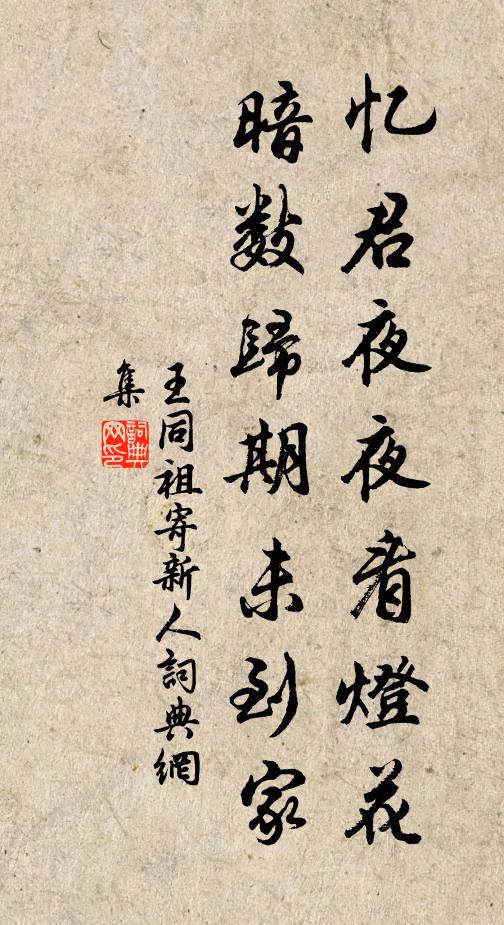 忆君夜夜看燈花
暗数歸期未到家
王同祖寄新人詞典網
集
詞典
网印